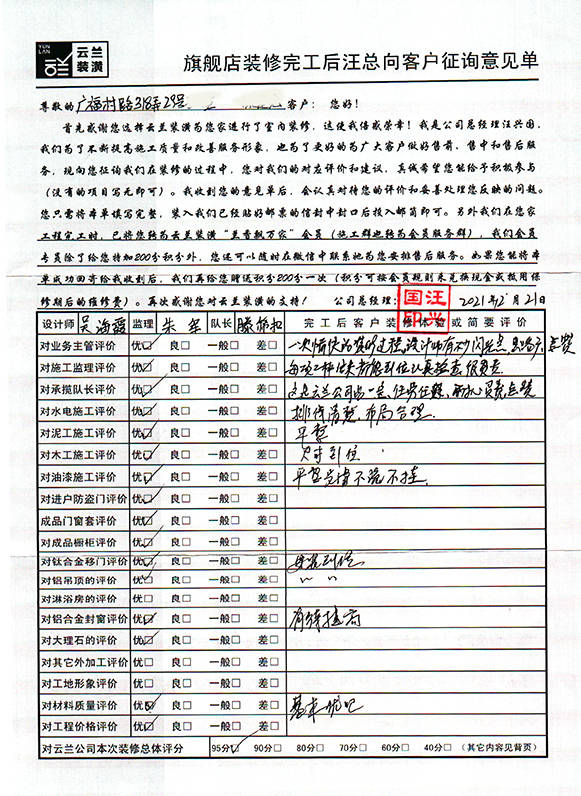 YUN LAN 云兰装潢
旗舰店装修完工后汪总向客户征询意见单
尊敬的 广福村路318弄29号 客户：您好！
首先感谢您选择云兰装潢为您家进行了室内装修，这使我倍感荣幸！我是公司总经理汪兴国，
我们为了不断提高施工质量和改善服务形象，也为了更好的为广大客户做好售前、售中和售后服
务，现向您征询我们在装修的过程中，您对我们的对应评价和建议，真诚希望您能给予积极参与
（没有的项目写无即可）。我收到您的意见单后，会认真对待您的评价和妥善处理您反映的问题。
您只需将本单填写完整，装入我们已经贴好邮票的信封中封口后投入邮筒即可。另外我们在您家
工程完工时，已将您转为云兰装潢“兰香飘万家”会员（施工群也转为会员服务群），我们会员
专员除了给您特加200分积分外，您还可以随时在微信中联系她为您安排售后服务。如果您能将本
单成功回寄给我收到后，我们再给您赠送积分200分一次（积分可按会员规则来兑换现金或抵用保
修期后的维修费）。再次感谢您对云兰装潢的支持！ 公司总经理： 国汪印兴 2021年12月21日
设计师 吴海霞 监理 朱军 队长 滕 完工后客户装修体验或简要评价
对业务主管评价 优☑ 良□ 一般□ 差□ 一次愉快的装修过程，设计师
对施工监理评价 优☑ 良□ 一般□ 差□ 认真检查 很负责
对承揽队长评价 优☑ 良□ 一般□ 差□ 云兰公司
对水电施工评价 优☑ 良□ 一般□ 差□ 排线清楚，布局合理.
对泥工施工评价 优☑ 良□ 一般□ 差□ 平整
对木工施工评价 优☑ 良□ 一般□ 差□ 尺寸到位
对油漆施工评价 优☑ 良□ 一般□ 差□ 平整光滑不流不挂.
对进户防盗门评价 优☑ 良□ 一般□ 差□
成品门窗套评价 优☑ 良□ 一般□ 差□
对成品橱柜评价 优☑ 良□ 一般□ 差□
对钛合金移门评价 优☑ 良□ 一般□ 差□ 安装到位
对铝吊顶的评价 优☑ 良□ 一般□ 差□ 〃 〃
对淋浴房的评价 优□ 良□ 一般□ 差□
对铝合金封窗评价 优☑ 良□ 一般□ 差□ 有待提高
对大理石的评价 优☑ 良□ 一般□ 差□
对其它外加工评价 优□ 良□ 一般□ 差□
对工地形象评价 优□ 良□ 一般□ 差□
对材料质量评价 优☑ 良□ 一般□ 差□ 基本
对工程价格评价 优☑ 良□ 一般□ 差□
对云兰公司本次装修总体评分 95分☑ 90分□ 80分□ 70分□ 60分□ 40分□ （其它内容见背页）